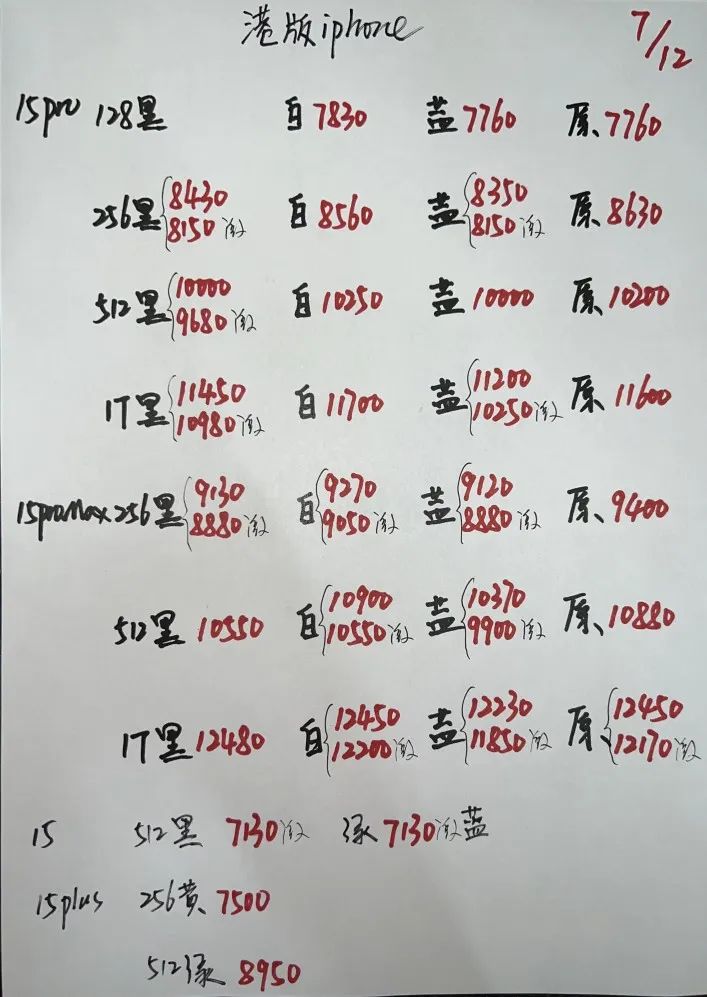 港版iphone 7/12
15pro 128黑 白7830 蓝7760 原、7760
256黑 8430 8150激 白8560 蓝 8350 8150激 原、8630
512黑 10000 9680激 白10250 蓝10000 原、10200
1T黑 11450 10980激 白11700 蓝 11200 10250激 原、11600
15promax256黑 9130 8880激 白 9270 9050激 蓝 9120 8880激 原、9400
512黑 10550 白 10900 10550激 蓝 10370 9900激 原、10880
1T黑 12480 白 12450 12200激 蓝 12230 11850激 原、 12450 12170激
15 512黑 7130激 绿7130激蓝
15plus 256黄、7500
512绿 8950